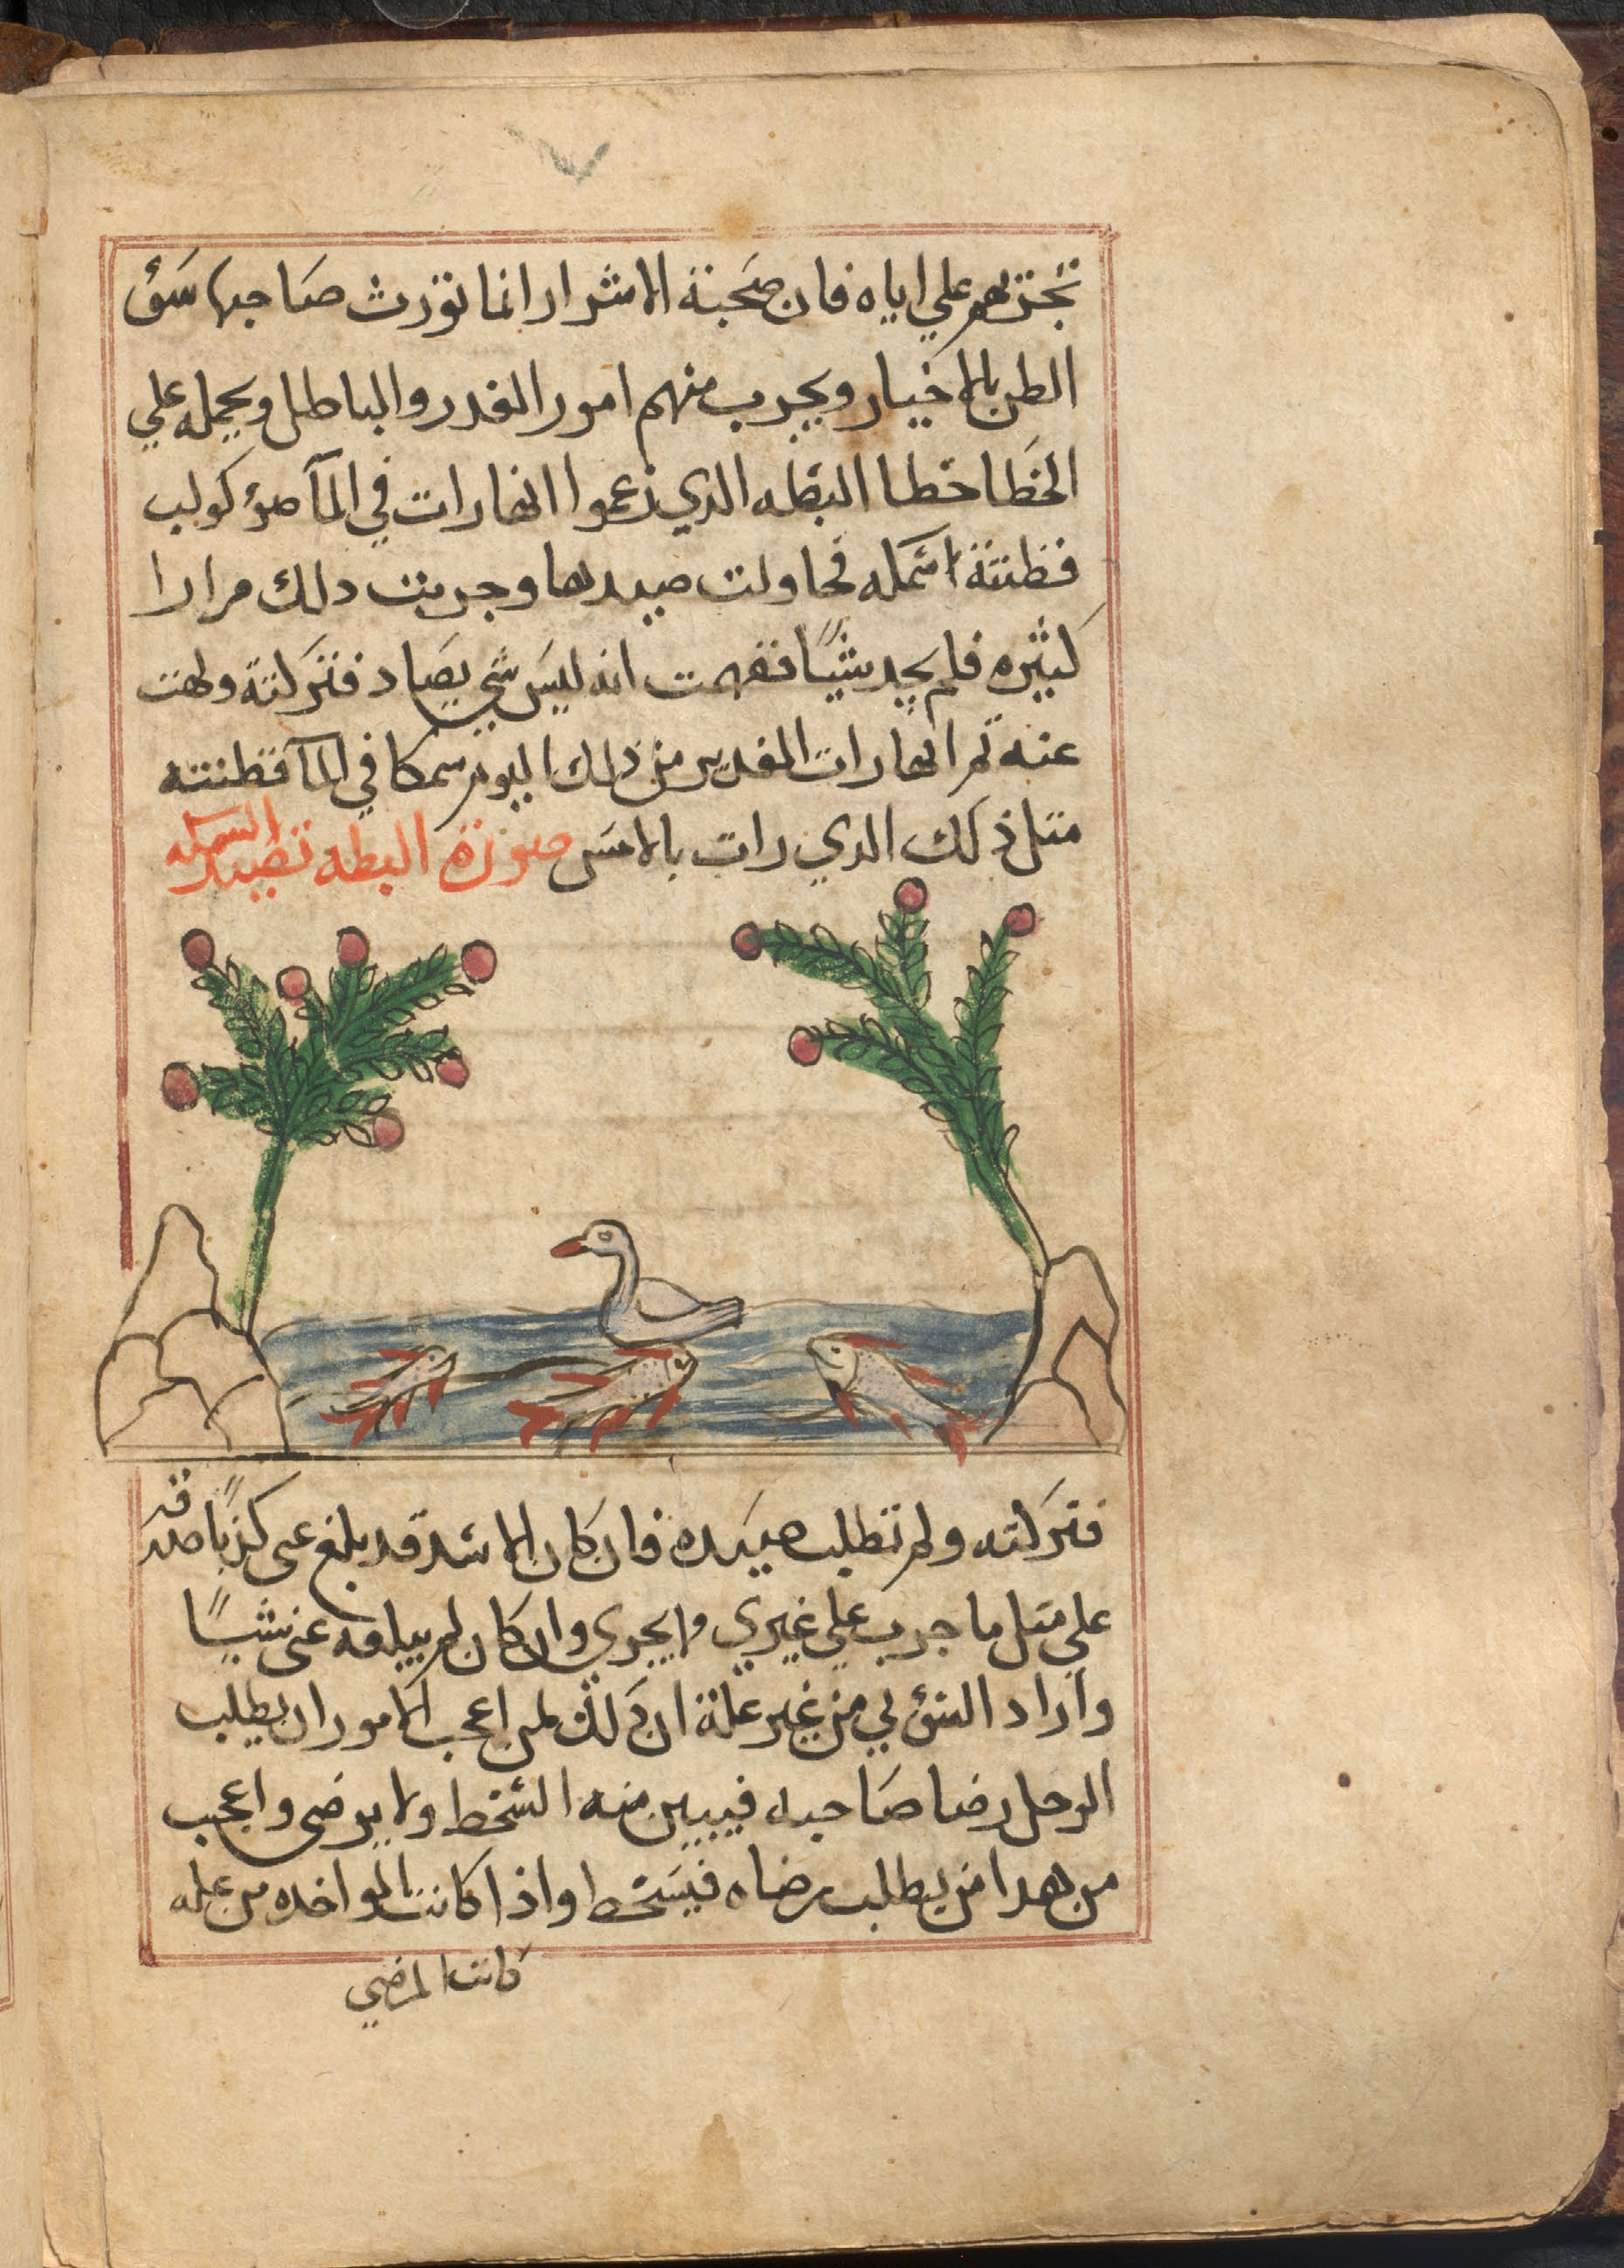 تجربهم علي اياه فان صحبة الاشرار انما تورث صاحبها سؤ
الظن بالاخيار ويجرب منهم امور الغدر والباطل ويحمله علي
الخطا خطا البطه الدي زعموا انها رات في المآ ضؤ كوكب
فظنته اسمكه فحاولت صيدها وجربت دلك مرارا
كثيره فلم يجد شيًا ففهمت انه ليس شي يصاد فتركته ولهت
عنه ثم انها رات الغدير من ذلك اليوم سمكا في المآ فظنته
متل ذلك الدي رات بالامس صورة البطه تصيد السمكه
فتركته ولم تطلب صيده فان كان الاسد قد بلغ عني كذبًا صدقه
علي متل ما جرب علي غيري ويجري وان كان لم يبلغه عني شيًا
واراد السؤ بي من غير علة ان ذلك لمن اعجب الامور ان يطلب
الرجل رضا صاحبه فيبين منه السخط ولا يرضى واعجب
من هدا من يطلب رضاه فيسخط واذا كانت المواخده من علله
كانت المرضي